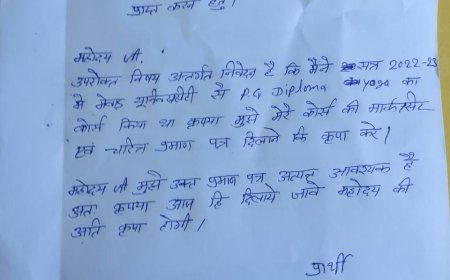 प्राप्त करने हेतु।
महोदय जी,
उपरोक्त विषय अन्तर्गत निवेदन है कि मैंने सत्र 2022-23
मे मेवाड़ यूनिवर्सिटी से P.G Diploma yoga का
कोर्स किया था कृपया मुझे मेरे कोर्स की मार्कशीट
एवं चरित्र प्रमाण पत्र दिलाने कि कृपा करे।
महोदय जी मुझे उक्त प्रमाण पत्र अत्यन्त आवश्यक है
अतः कृपया आप हि दिलाये जावे महोदय की
अति कृपा होगी।
प्रार्थी